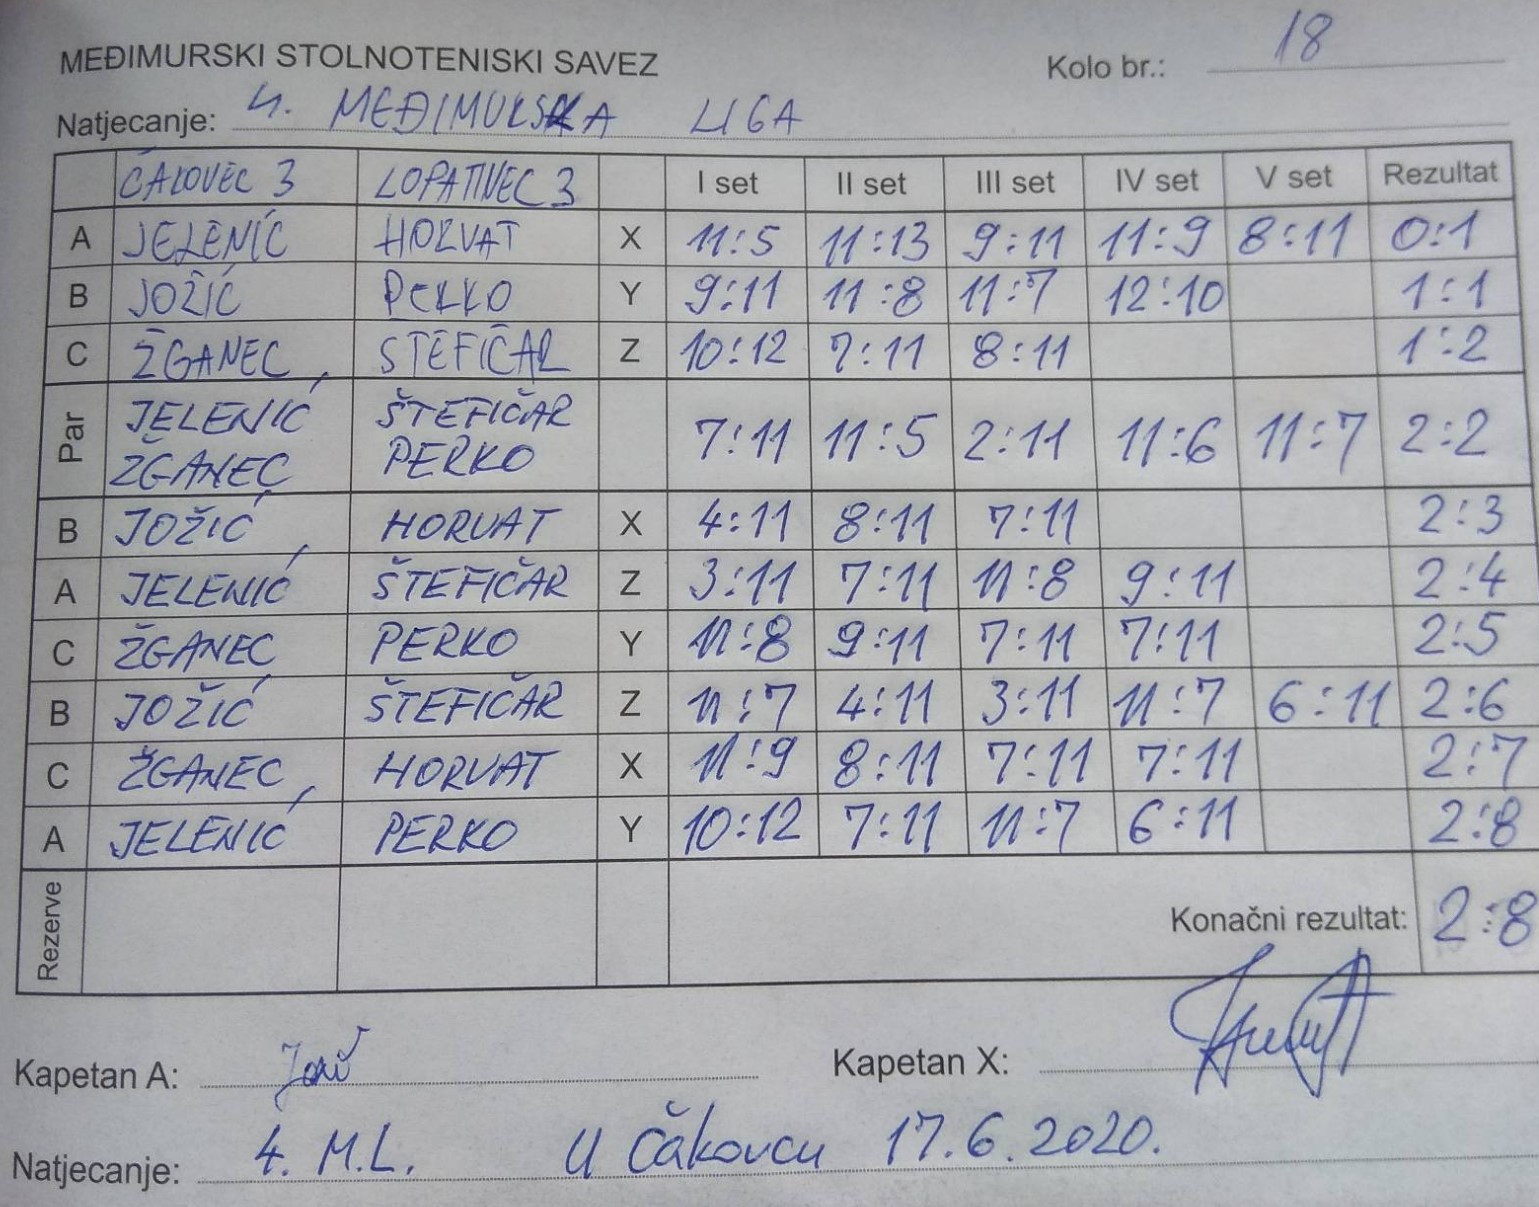 MEĐIMURSKI STOLNOTENISKI SAVEZ Kolo br.: 18
Natjecanje: 4. MEĐIMURSKA LIGA
ČAKOVEC 3 LOPATINEC 3 I set II set III set IV set V set Rezultat
A JELENIĆ HORVAT X 11:5 11:13 9:11 11:9 8:11 0:1
B JOŽIĆ PERKO Y 9:11 11:8 11:7 12:10 1:1
C ŽGANEC ŠTEFIČAR Z 10:12 7:11 8:11 1:2
Par JELENIĆ ŽGANEC ŠTEFIČAR PERKO 7:11 11:5 2:11 11:6 11:7 2:2
B JOŽIĆ HORVAT X 4:11 8:11 7:11 2:3
A JELENIĆ ŠTEFIČAR Z 3:11 7:11 11:8 9:11 2:4
C ŽGANEC PERKO Y 11:8 9:11 7:11 7:11 2:5
B JOŽIĆ ŠTEFIČAR Z 11:7 4:11 3:11 11:7 6:11 2:6
C ŽGANEC HORVAT X 11:9 8:11 7:11 7:11 2:7
A JELENIĆ PERKO Y 10:12 7:11 11:7 6:11 2:8
Rezerve Konačni rezultat: 2:8
Kapetan A: Kapetan X:
Natjecanje: 4. M.L. U Čakovcu 17.6.2020.